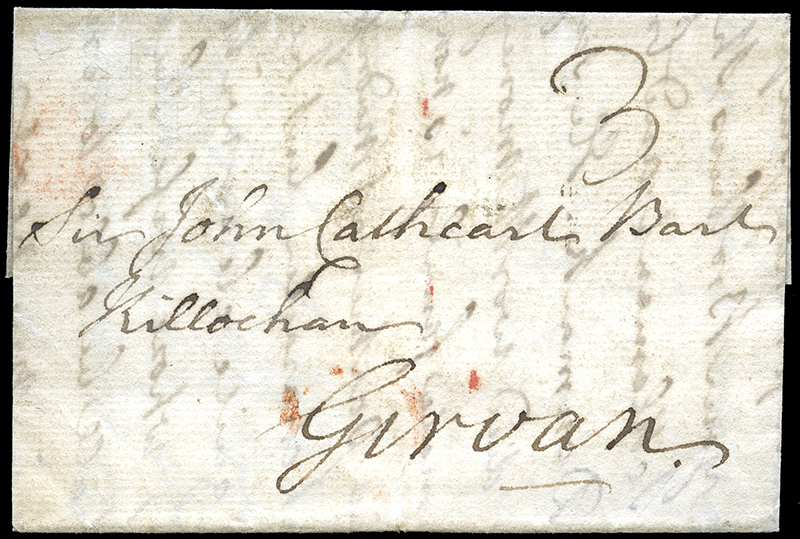 3
Sir John Cathcart Bart
Killochan
Girvan.